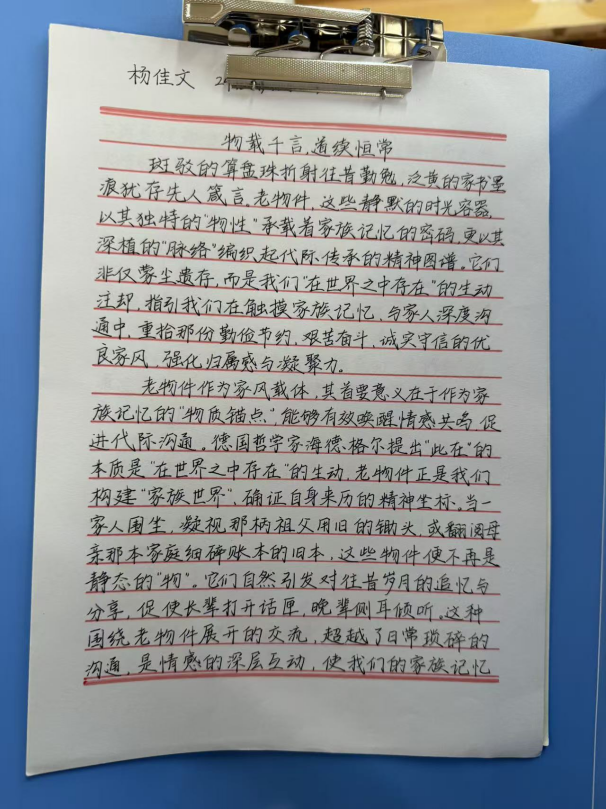 杨佳文
物载千言,道续恒常
斑驳的算盘珠折射往昔勤勉,泛黄的家书墨
痕犹存先人箴言。老物件,这些静默的时光容器,
以其独特的“物性”承载着家族记忆的密码,更以其
深植的“脉络”编织起代际传承的精神图谱。它们
非仅蒙尘遗存,而是我们“在世界之中存在”的生动
注却,指引我们在触摸家族记忆,与家人深度沟
通中,重拾那份勤俭节约、艰苦奋斗、诚实守信的优
良家风,强化归属感与凝聚力。
老物件作为家风载体,其首要意义在于作为家
族记忆的“物质锚点”,能够有效唤醒情感共鸣,促
进代际沟通。德国哲学家海德格尔提出“此在”的
本质是“在世界之中存在”的生动,老物件正是我们
构建“家族世界”、确证自身来历的精神坐标。当一
家人围坐,凝视那柄祖父用旧的锄头,或翻阅母
亲那本家庭细碎账本的旧本,这些物件便不再是
静态的“物”。它们自然引发对往昔岁月的追忆与
分享,促使长辈打开话匣,晚辈侧耳倾听。这种
围绕老物件展开的交流,超越了日常琐碎的
沟通,是情感的深层互动,使我们的家族记忆